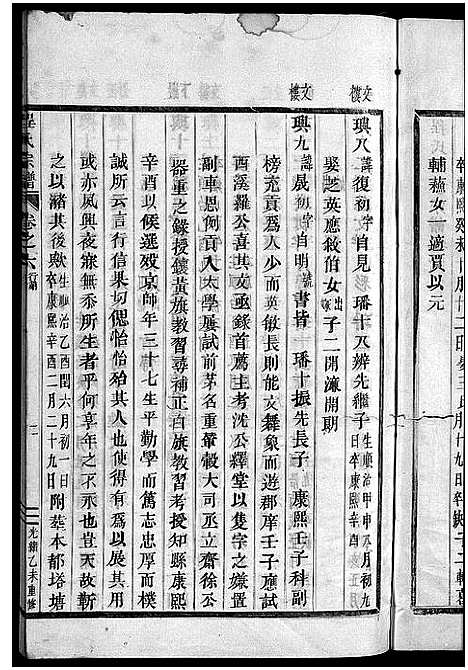 輔蕪女一適賈以元
文樓
興八諱復初字自見璠十五辨先繼子生順治甲申八月初九日卒康熙
娶芝英應敘伯女子二開濂開期
文樓
興九諱晟初字自明號書皆璠十振先長子康熙壬子科副
榜充貢爲人少而英敏長則能文舞象而遊郡庠壬子應試
酉溪羅公喜其文亟錄首薦主考沈公繹堂以隻字之嫌置
副車恩例貢入太學屢試前茅名重輦轂大司丞立齋徐公
器重之錄授鑲黃旗教習尋補正白旗教習考授知縣康熙
辛酉以候選歿京師年三十七生平勤學而篤志忠厚而樸
誠所云言行信果切偲怡怡殆其人也使其得有爲以展用
或亦夙興夜寐無忝所生者乎何享年之不永也豈天故靳
之以濬其後歟生順治乙酉閏六月初一日卒康熙辛酉二月二十九日附葬本都塔塘
程氏宗譜
卷之六行第
光緖乙未重修